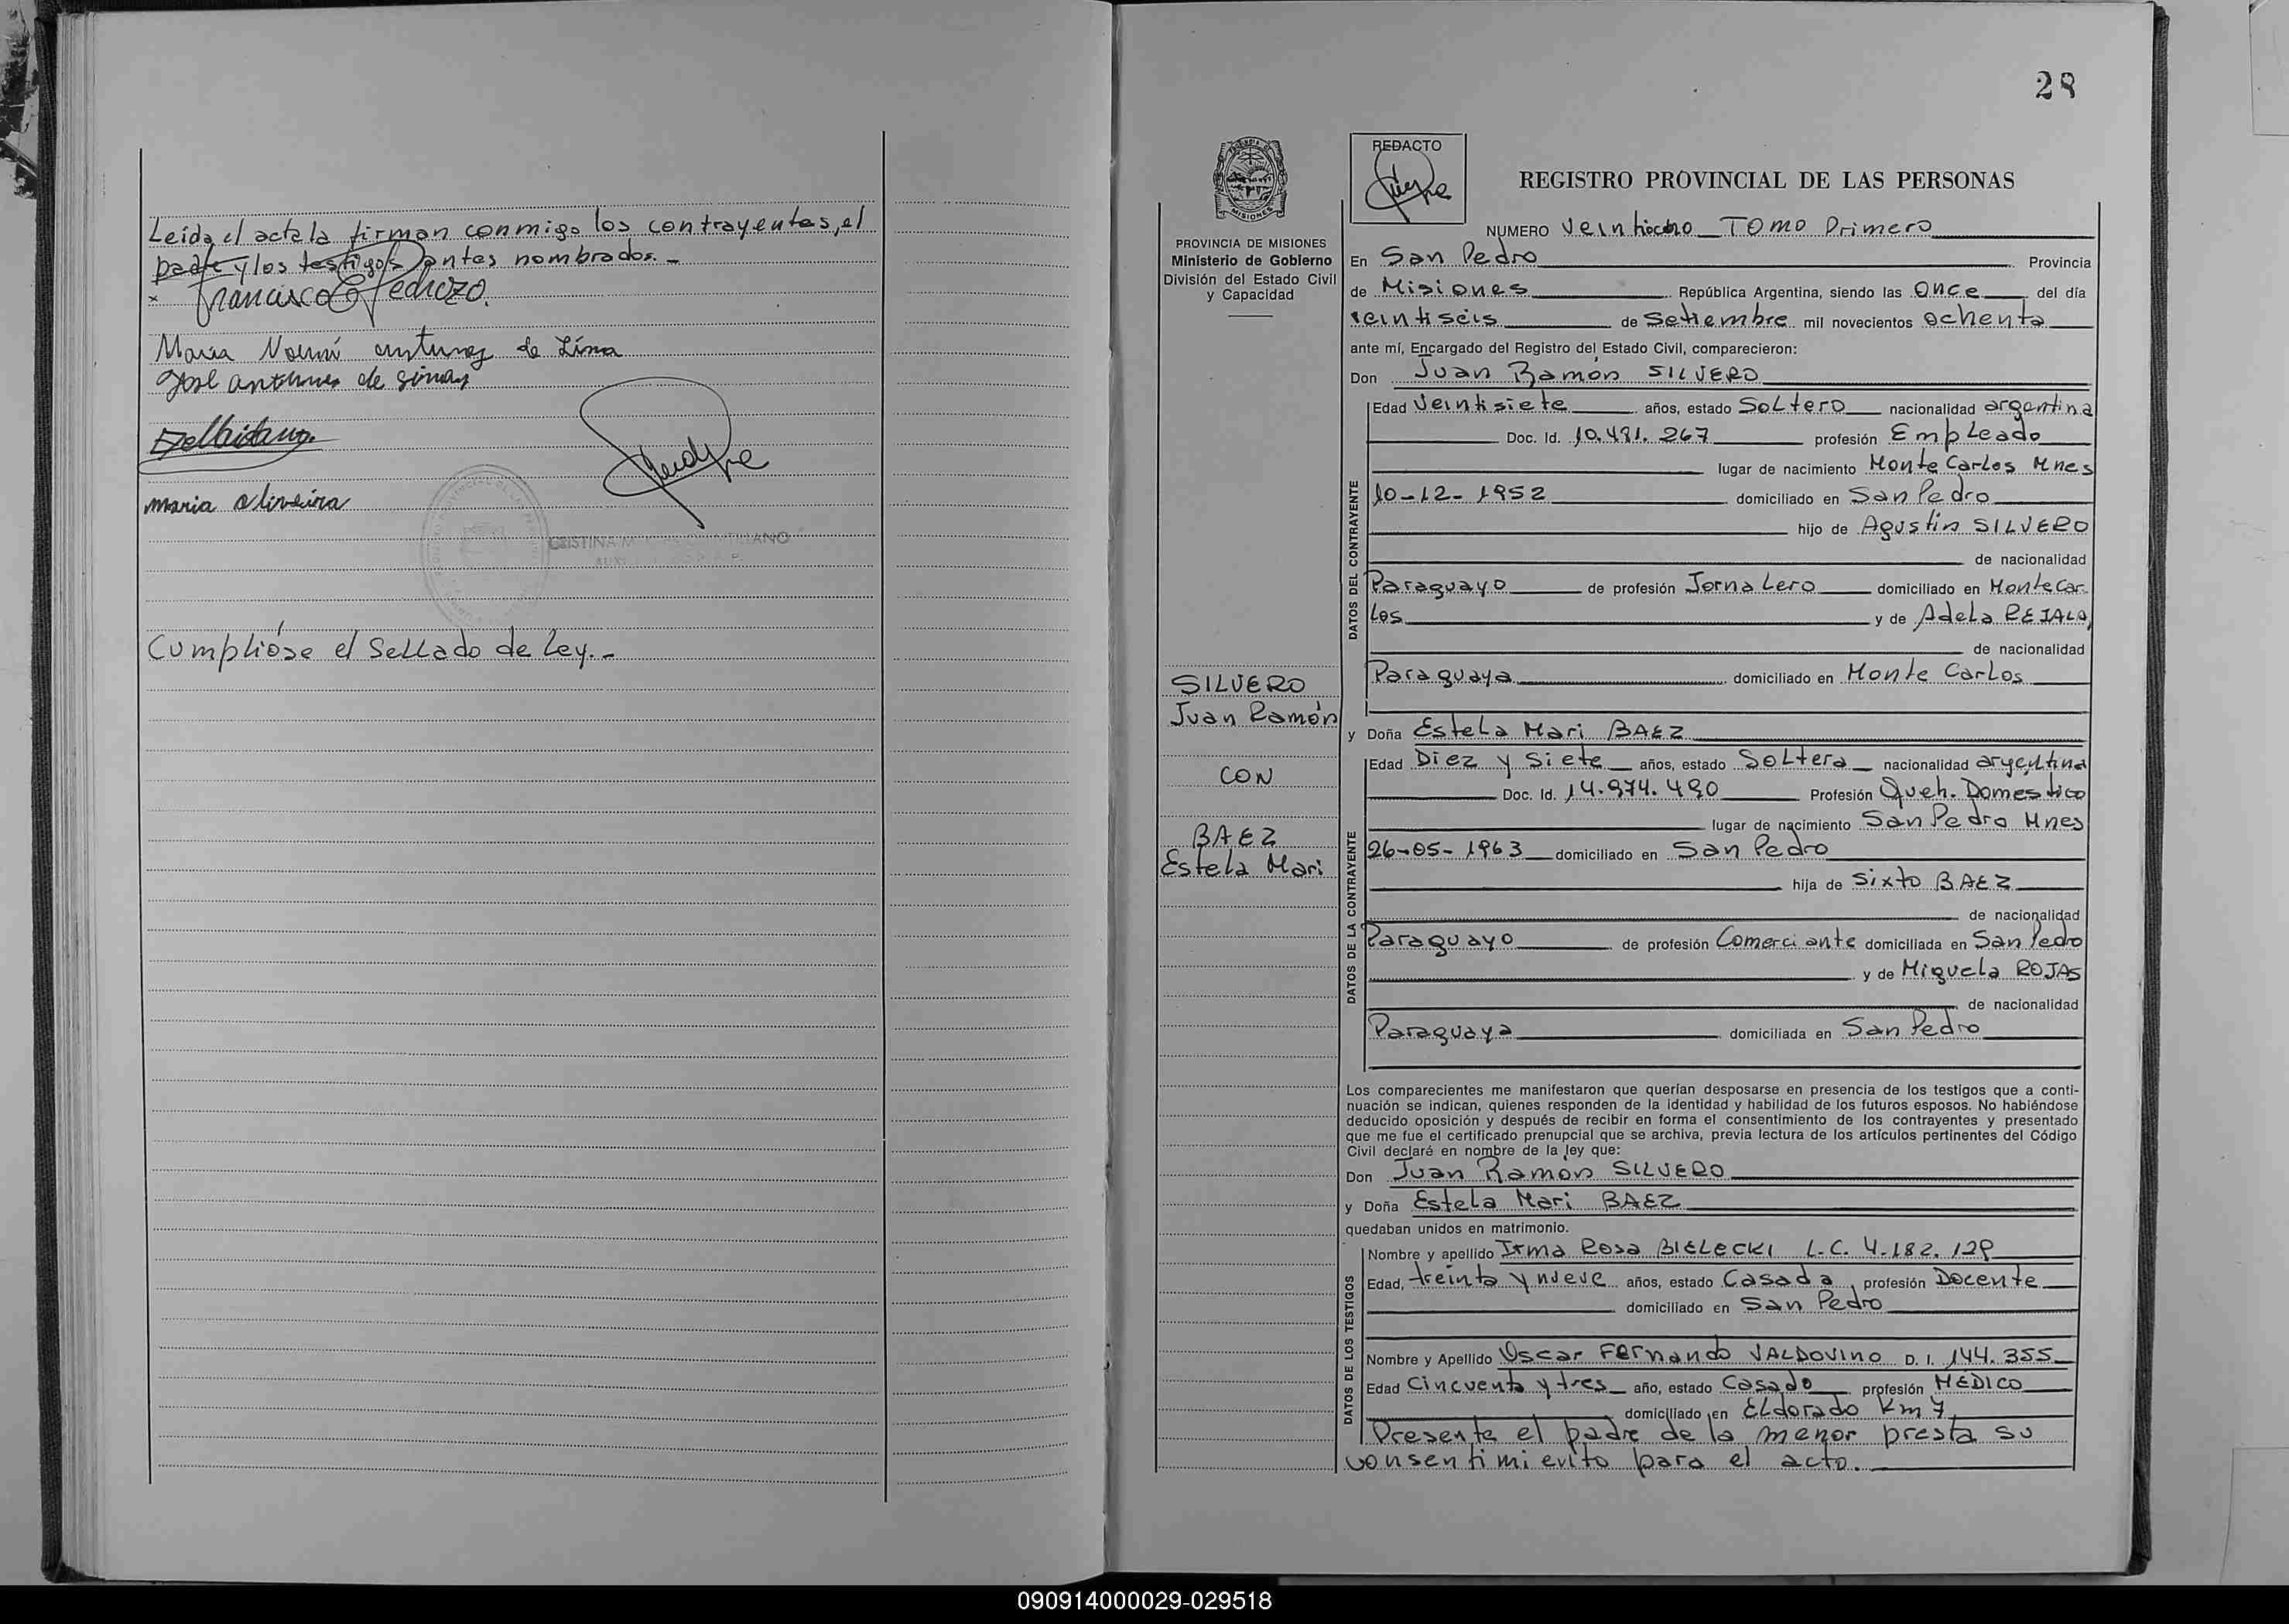 Leída el acta la firman conmigo los contrayentes, el
padre y los testigos antes nombrados.-
x Francisco G Pedrozo.
Maria Noemí antunez de Lima
José antunes de
maria oliveira
CRISTINA
Cumplióse el Sellado de Ley.-
28
REDACTO
REGISTRO PROVINCIAL DE LAS PERSONAS
MISIONES
PROVINCIA DE MISIONES
Ministerio de Gobierno
División del Estado Civil
y Capacidad
NUMERO Veintiocho TOMO Primero
En San Pedro Provincia
de Misiones República Argentina, siendo las Once del día
veintiseis de Setiembre mil novecientos ochenta
ante mí, Encargado del Registro del Estado Civil, comparecieron:
Don Juan Ramón SILVERO
DATOS DEL CONTRAYENTE
Edad Veintisiete años, estado Soltero nacionalidad argentina
Doc. Id. 10.481.267 profesión Empleado
lugar de nacimiento Monte Carlos Mnes
10-12-1952 domiciliado en San Pedro
hijo de Agustin SILVERO
de nacionalidad
Paraguayo de profesión Jornalero domiciliado en Monte Car-
los y de Adela REJALA
de nacionalidad
Paraguaya domiciliado en Monte Carlos
SILVERO
Juan Ramón
CON
BAEZ
Estela Mari
y Doña Estela Mari BAEZ
DATOS DE LA CONTRAYENTE
Edad Diez y Siete años, estado Soltera nacionalidad argentina
Doc. Id. 14.974.490 Profesión Queh. Domestico
lugar de nacimiento San Pedro Mnes
26-05-1963 domiciliado en San Pedro
hija de Sixto BAEZ
de nacionalidad
Paraguayo de profesión Comerciante domiciliada en San Pedro
y de Miguela ROJAS
de nacionalidad
Paraguaya domiciliada en San Pedro
Los comparecientes me manifestaron que querían desposarse en presencia de los testigos que a conti-
nuación se indican, quienes responden de la identidad y habilidad de los futuros esposos. No habiéndose
deducido oposición y después de recibir en forma el consentimiento de los contrayentes y presentado
que me fue el certificado prenupcial que se archiva, previa lectura de los artículos pertinentes del Código
Civil declaré en nombre de la ley que:
Don Juan Ramon SILVERO
y Doña Estela Mari BAEZ
quedaban unidos en matrimonio.
DATOS DE LOS TESTIGOS
Nombre y apellido Irma Rosa BIELECKI L.C. 4.182.129
Edad, treinta y nueve años, estado Casada, profesión Docente
domiciliado en San Pedro
Nombre y Apellido Oscar Fernando VALDOVINO D. I. 144.355
Edad Cincuenta y tres año, estado Casado profesión MEDICO
domiciliado en Eldorado Km 7
Presente el padre de la menor presta su
consentimiento para el acto.
090914000029-029518